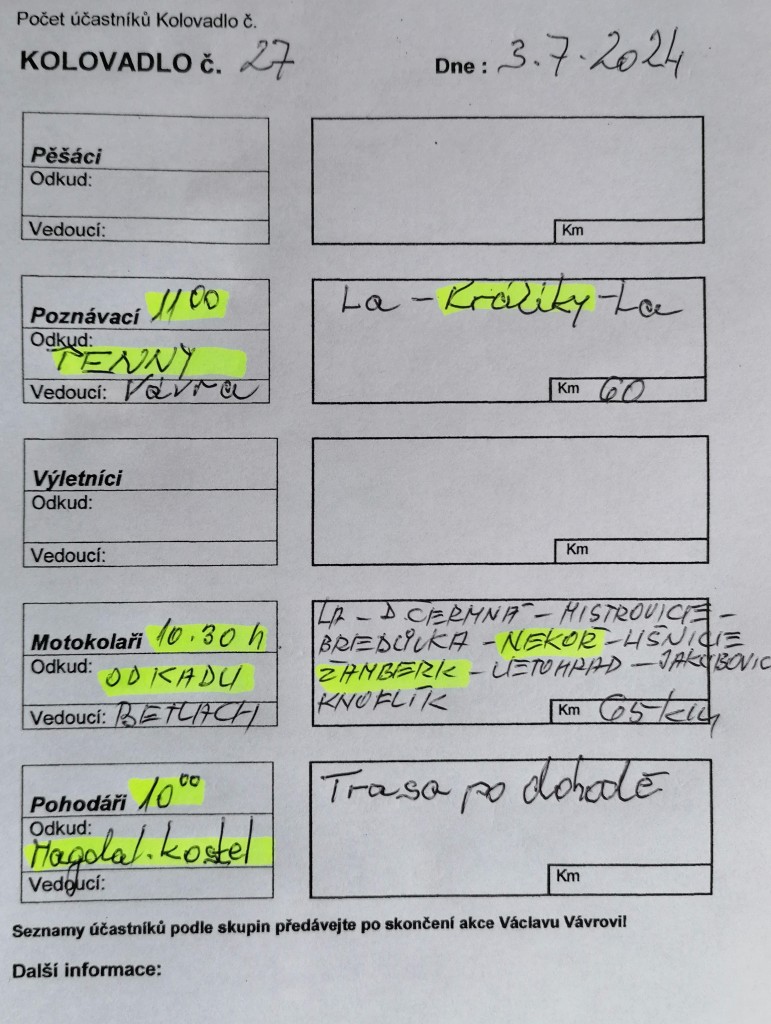 Počet účastníků Kolovadlo č.
KOLOVADLO č. 27 Dne : 3.7.2024
Pěšáci
Odkud:
Vedoucí:
Km
Poznávací 11 00
Odkud:
TENNY
Vedoucí: Vávra
La - Králíky - La
Km 60
Výletníci
Odkud:
Vedoucí:
Km
Motokolaři 10.30 h.
Odkud:
OD KADU
Vedoucí: BETLACH
LA - D ČERMNÁ - MISTROVICE -
BREDŮVKA - NEKOŘ - LIŠNICE
ŽAMBERK - LETOHRAD - JAKUBOVIC
KNOFLÍK
Km 65 km
Pohodáři 10 00
Odkud:
Magdal. kostel
Vedoucí:
Trasa po dohodě
Km
Seznamy účastníků podle skupin předávejte po skončení akce Václavu Vávrovi!
Další informace: